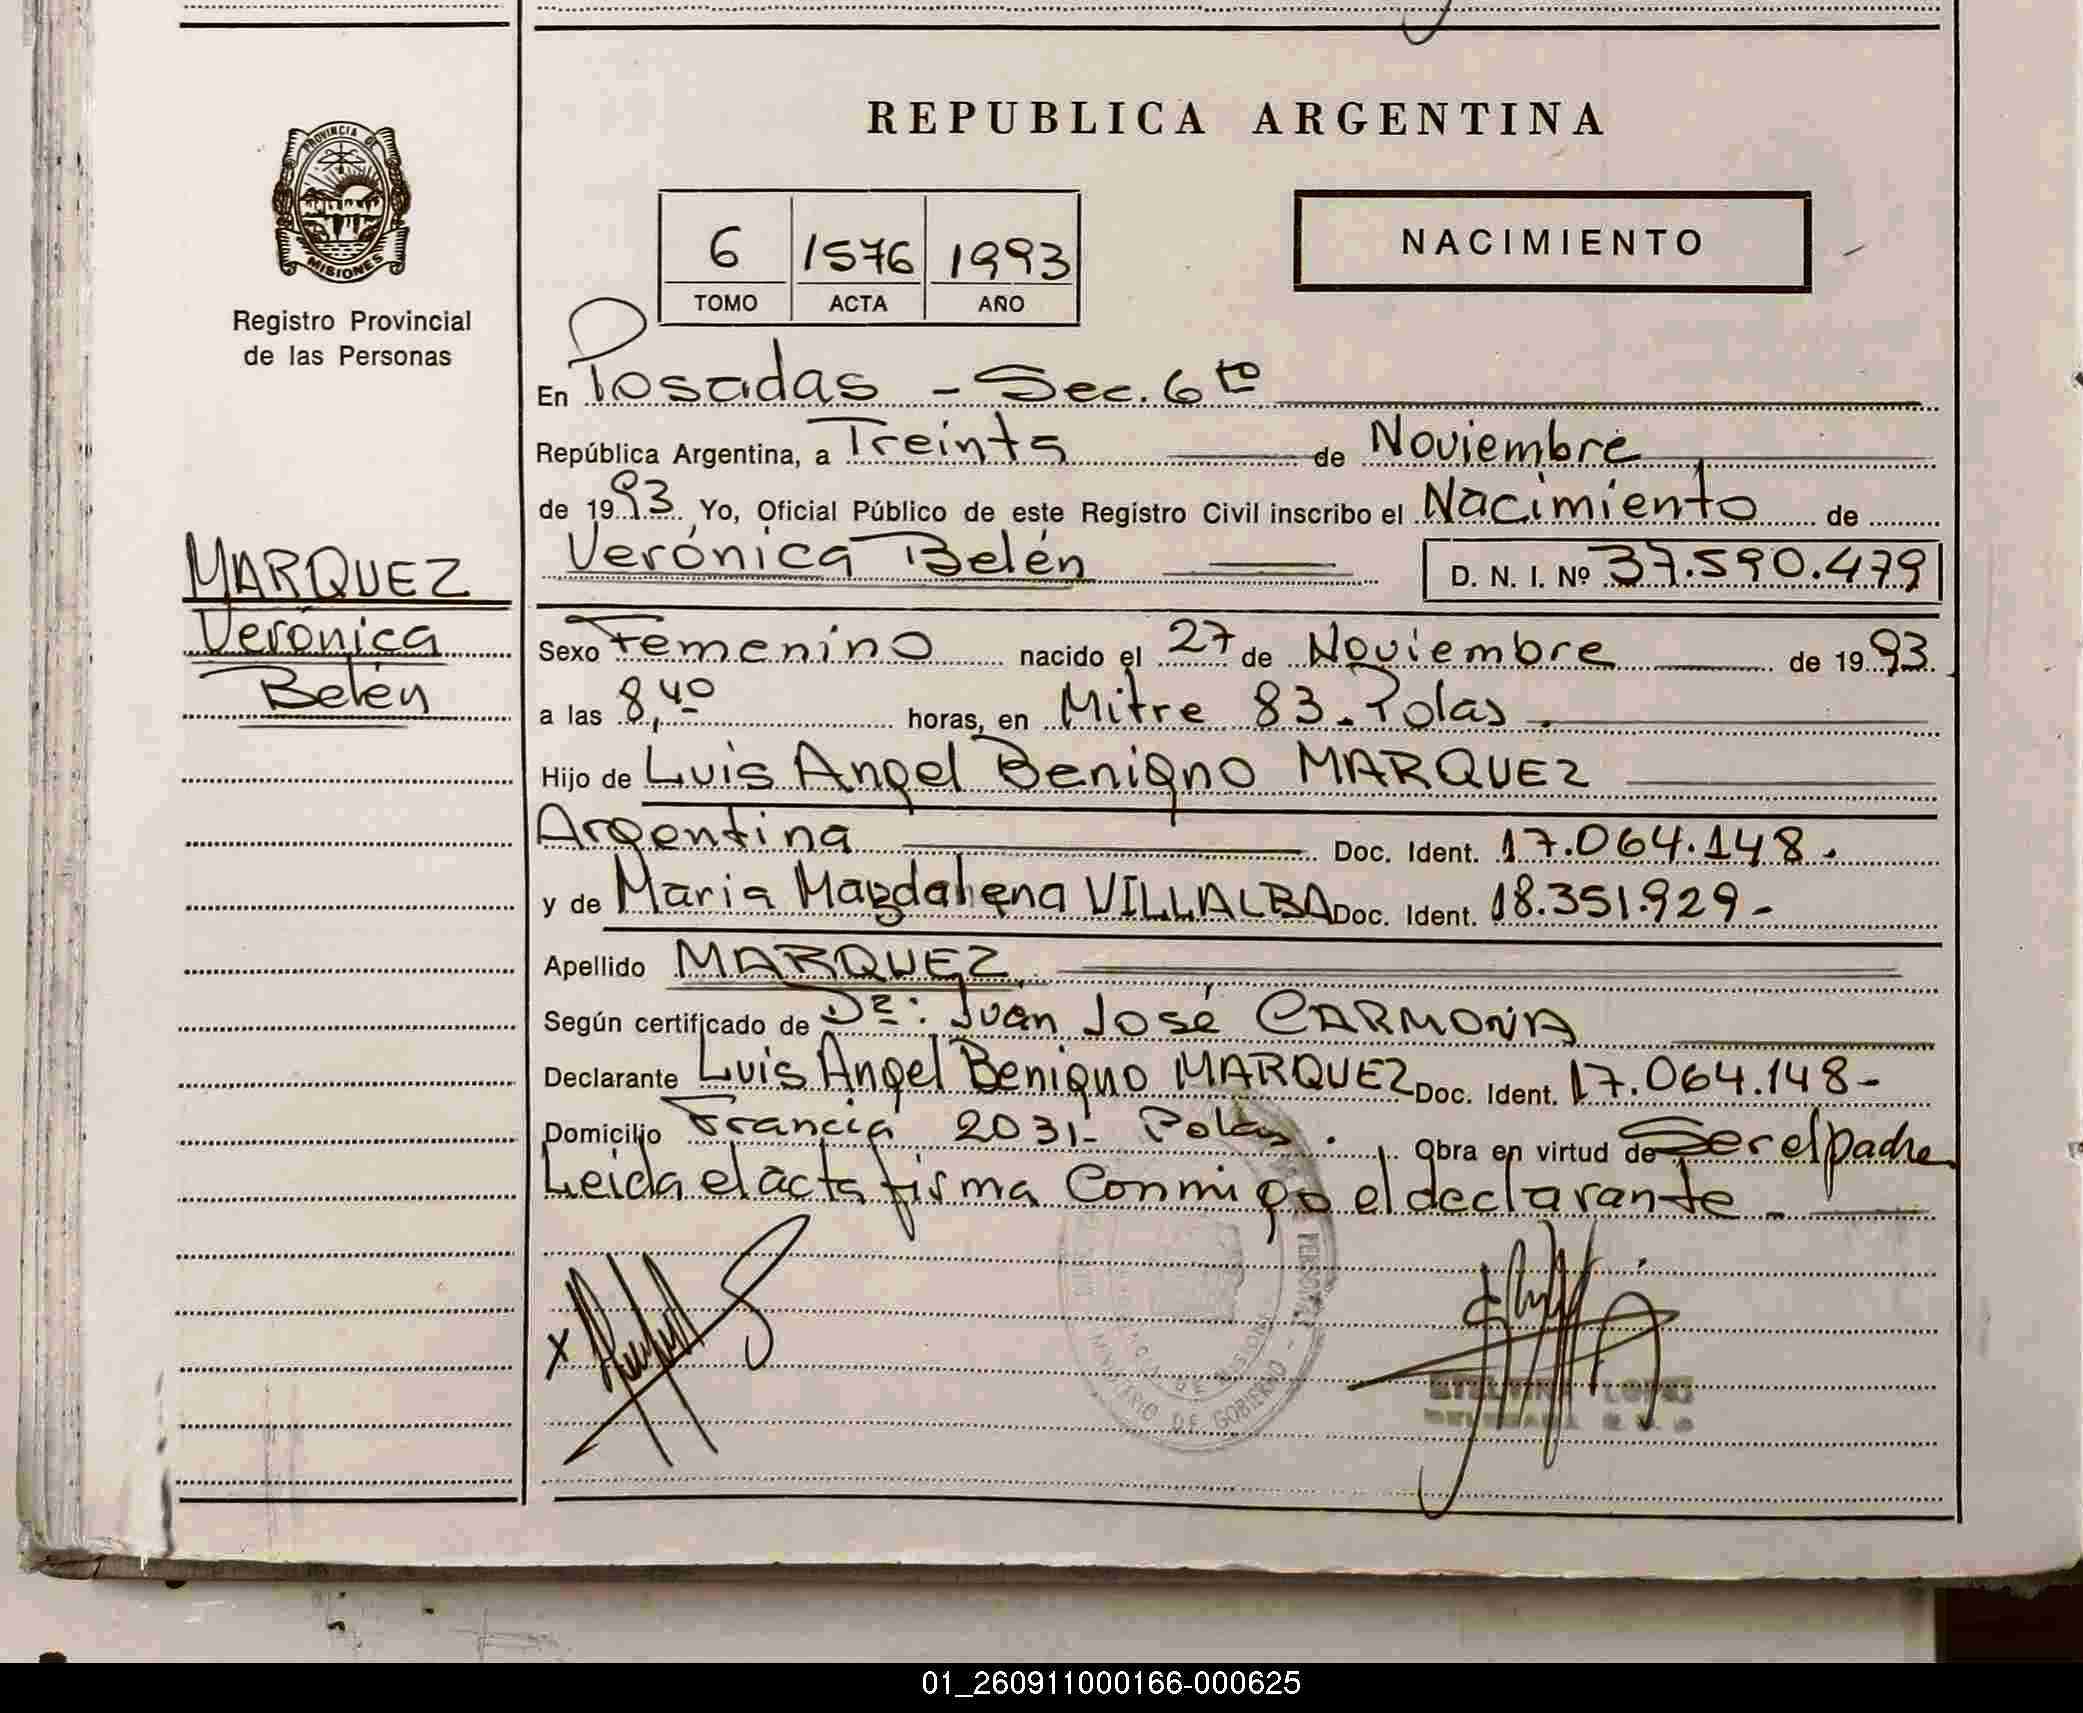 REPUBLICA ARGENTINA
PROVINCIA DE
MISIONES
Registro Provincial
de las Personas
6 1576 1993
TOMO ACTA AÑO
NACIMIENTO
En Posadas - Sec. 6to
República Argentina, a Treinta de Noviembre
de 1993. Yo, Oficial Público de este Registro Civil inscribo el Nacimiento de
Verónica Belén D. N. I. Nº 37.590.479
MARQUEZ
Verónica
Belén
Sexo Femenino nacido el 27 de Noviembre de 1993.
a las 8,40 horas, en Mitre 83. Polas.
Hijo de Luis Angel Benigno MARQUEZ
Argentina Doc. Ident. 17.064.148.
y de Maria Magdalena VILLALBA Doc. Ident. 18.351.929-
Apellido MARQUEZ
Según certificado de Dr: Juan José CARMONA
Declarante Luis Angel Benigno MARQUEZ Doc. Ident. 17.064.148-
Domicilio Francia 2031- Polas. Obra en virtud de Ser el padre
Leida el acta firma Conmigo el declarante.
MINISTERIO DE GOBIERNO
01_260911000166-000625